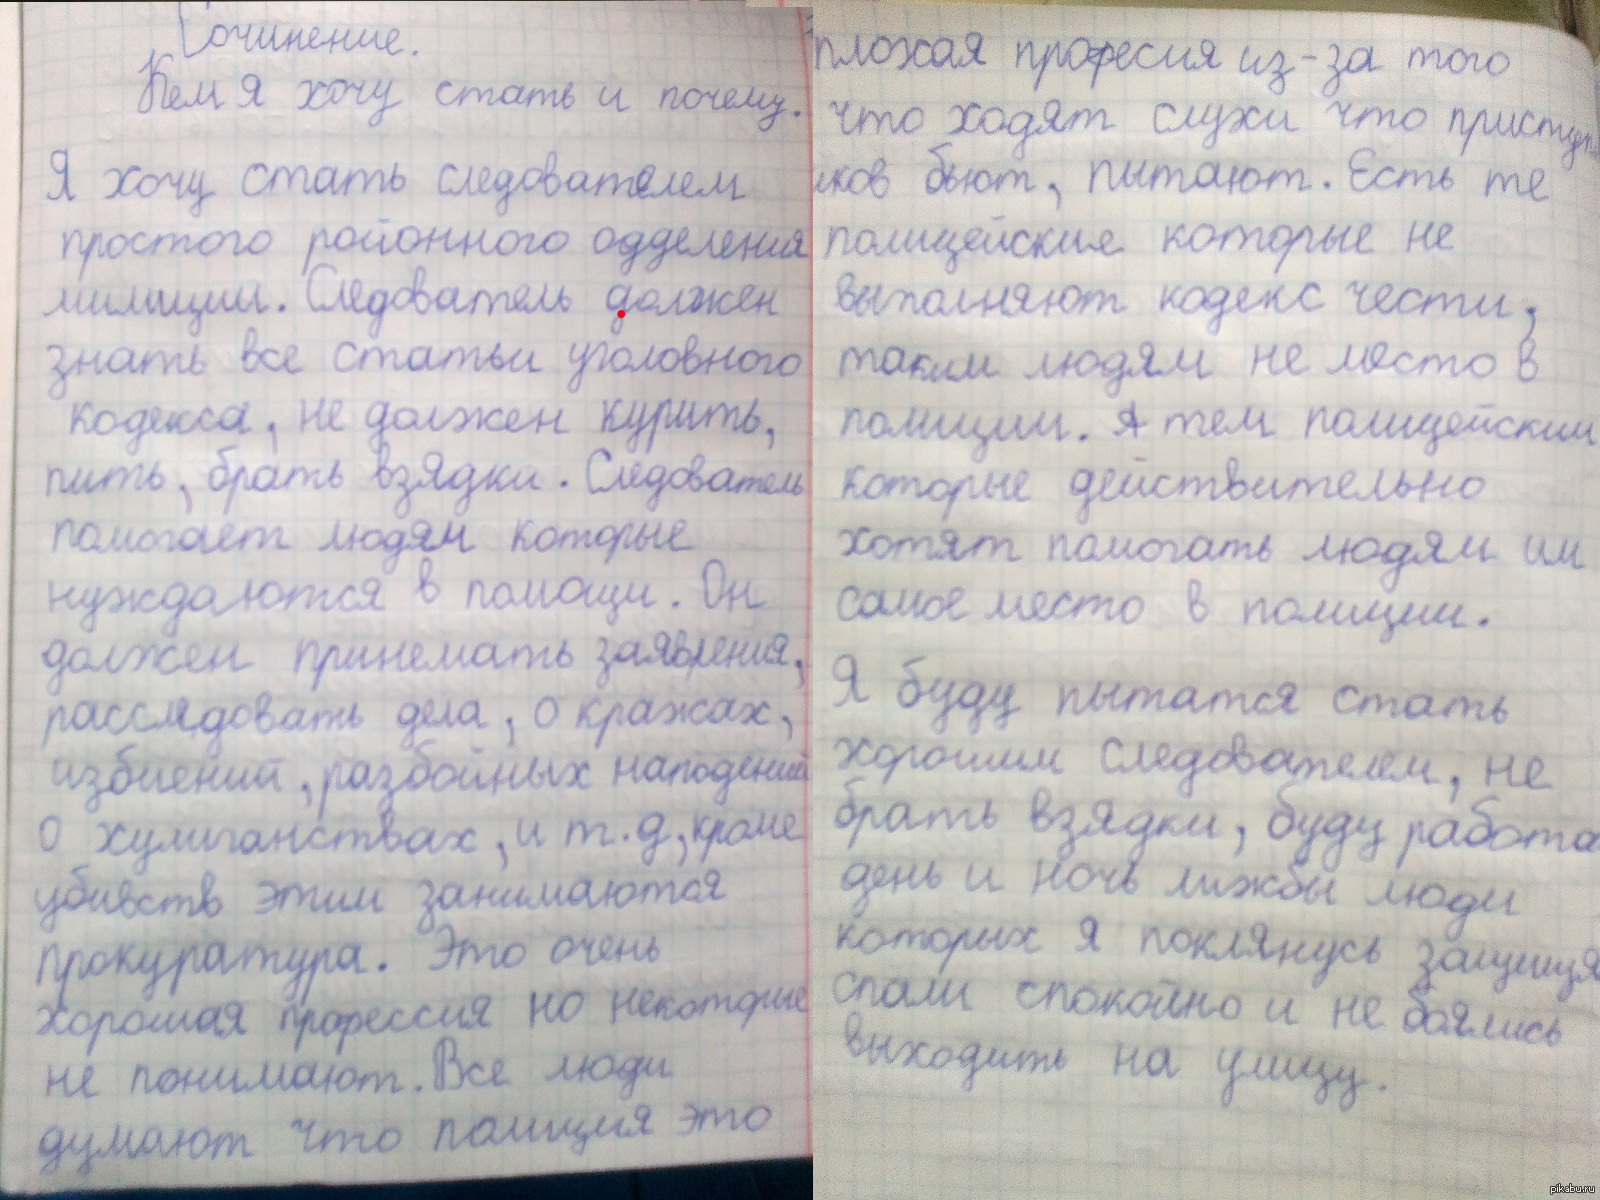 Сочинение.
Кем я хочу стать и почему.
Я хочу стать следователем
простого районного одделения
милиции. Следователь должен
знать все статьи уголовного
кодекса, не должен курить,
пить, брать взядки. Следователь
помогает людям которые
нуждаются в помощи. Он
должен принемать заявления,
расследовать дела, о кражах,
избиений, разбойных нападений
о хулиганствах, и т.д, кроме
убивств этим занимаются
прокуратура. Это очень
хорошая профессия но некоторые
не понимают. Все люди
думают что полиция это
плохая професия из-за того
что ходят слухи что приступ
иков бьют, пытают. Есть те
полицейские которые не
выполняют кодекс чести,
таким людям не место в
полиции. А тем полицейским
которые действительно
хотят помогать людям им
самое место в полиции.
Я буду пытатся стать
хорошим следователем, не
брать взядки, буду работа
день и ночь лижбы люди
которых я поклянусь защищя
спали спокойно и не боялись
выходить на улицу.
pikabu.ru